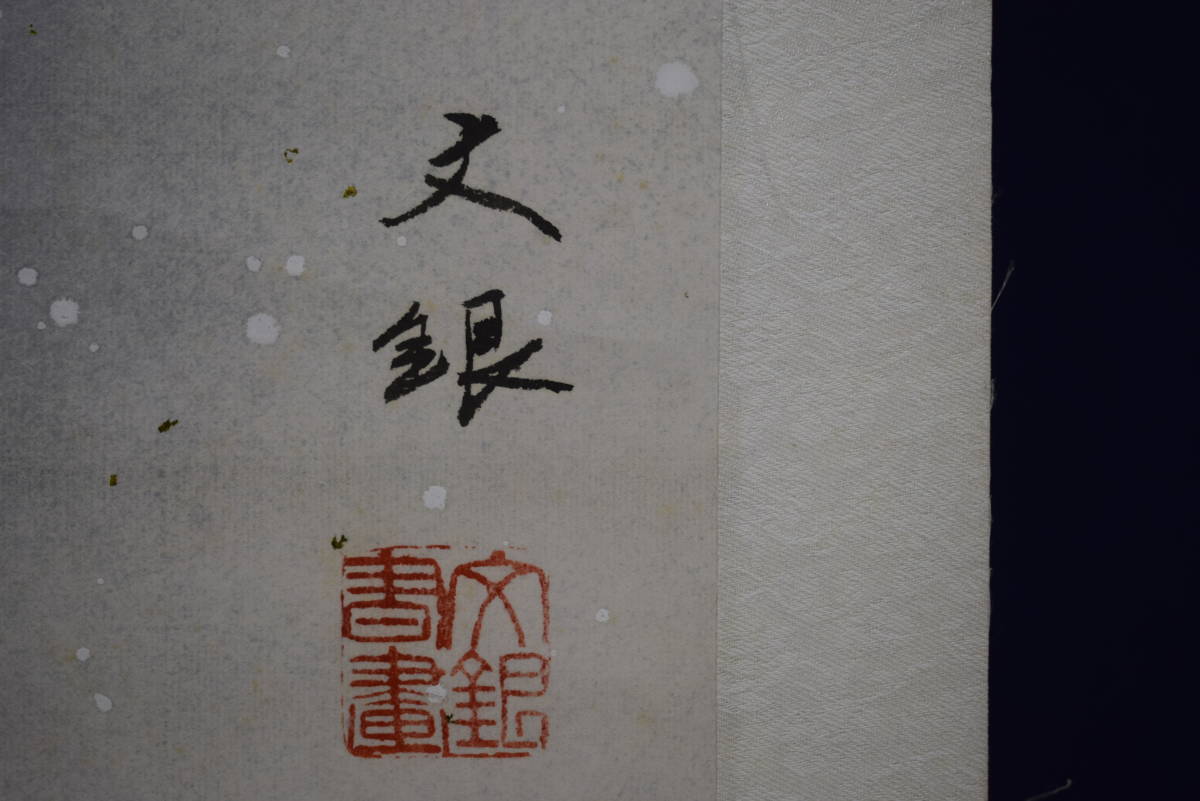 文
銀
文銀
書畫